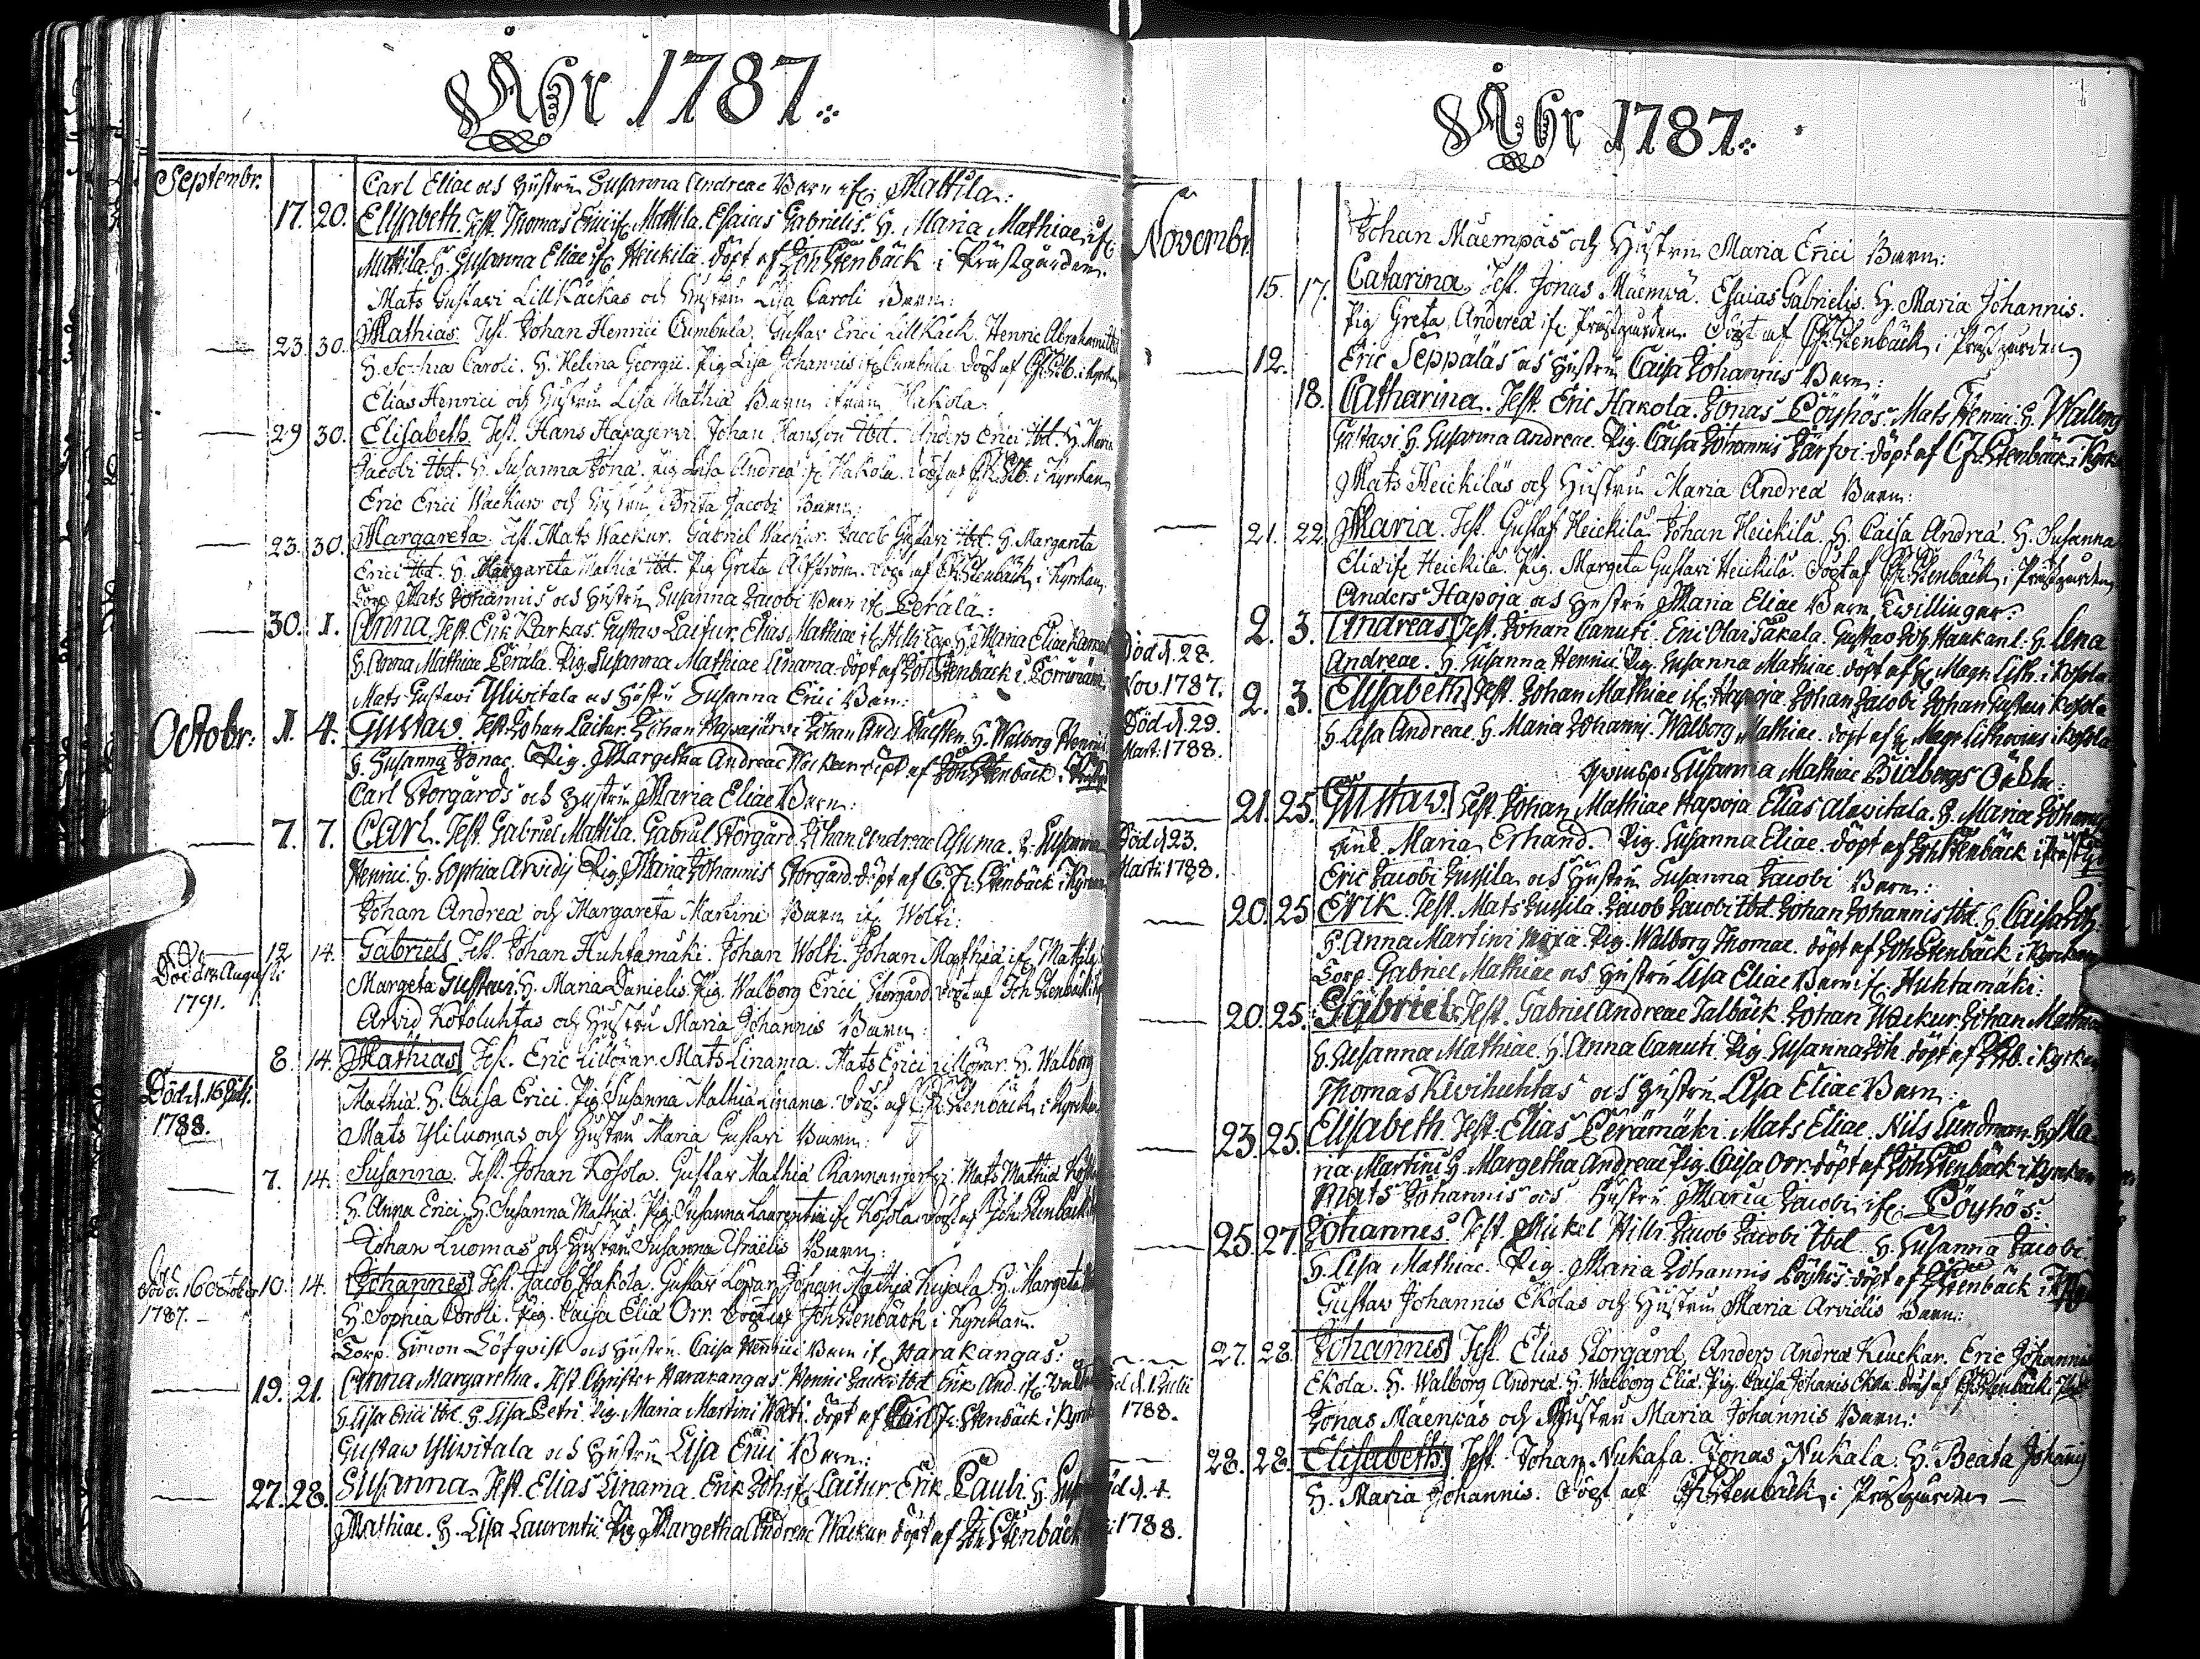 Åhr 1787.
Septembr.
Carl Eliae och Hustru Susanna Andreae Barn if. Mattila:
17. 20. Elisabeth. Test. Thomas Erici if. Mattila. Esaias Gabrielis. H. Maria Mathiae if.
Mattila. H. Susanna Eliae if. Heickilä. döpt af Joh Stenbäck i Prästgården.
Mats Gustavi Lill Kackas och Hustru Lisa Caroli Barn:
23. 30. Mathias. Test. Johan Henrici Cumbula. Gustav Erici Lill Kack. Henric Abrahami
H. Sophia Caroli. H. Helena Georgii. Pig. Lisa Johannis if. Cumbula. döpt af i Kyrkan
Elias Henrici och Hustru Lisa Mathiæ Barn ifrån Hakola.
29 30. Elisabeth. Test. Hans Hapajervi Johan Hansson Ibd. Anders Erici Ibd. H. Maria
Jacobi Ibd. H. Susanna Jonæ. Pig Lisa Andreæ if. Hakola. döpt af i Kyrkan
Eric Erici Wackurs och Hustru Brita Jacobi Barn:
23. 30. Margareta. Test. Mats Wackur. Gabriel Wackur. Jacob Gustavi Ibd. H. Margarita
Erici Ibd. H. Margareta Mathiæ Ibd. Pig Greta döpt af Stenbäck i Kyrkan
Torp. Mats Johannis och Hustru Susanna Jacobi Barn if. Perälä:
30. 1. Anna. Test. Erik Karkas. Gustav Laitur. Elias Mathiae if. H. Maria Eliae
H. Anna Mathiae Perälä. Pig. Susanna Mathiae Linama. döpt af Joh Stenbäck i
Mats Gustavi Yliwitala och Hustru Susanna Erici Barn:
Octobr: 1. 4. Gustav. Test. Johan Laitur. Johan Hapajärvi Johan And. H. Walborg Henrici
H. Susanna Jonae. Pig. Margetha Andreae döpt af Joh Stenbäck i
Carl Storgårds och Hustru Maria Eliae Barn:
7. 7. Carl. Test. Gabriel Mattila. Gabriel Storgård. Johan Andreae Asuma. H. Susanna
Henrici. H. Sophia Arvidj Pig. Maria Johannis Storgård. döpt af C. Fr. Stenbäck i Kyrkan
Johan Andreæ och Margareta Martini Barn if. Wolti:
12 14. Gabriel. Test. Johan Huhtamäki. Johan Wolti. Johan Mathiæ if.
Död d. Augusti
1791.
Margeta Gustavi. H. Maria Danielis. Pig. Walborg Erici Storgård. döpt af Joh Stenbäck
Arvid Kotoluhtas och Hustru Maria Johannis Barn:
8. 14. Mathias Test. Eric Lillörar. Mats Linama. Mats Erici Lillörar. H. Walborg
Död d. 16 Julj.
1788.
Mathiæ. H. Caisa Erici. Pig Susanna Mathiæ Linama. döpt af Stenbäck i Kyrkan
Mats Yliluomas och Hustru Maria Gustavi Barn:
7. 14. Susanna. Test. Johan Kosola. Gustav Mathiæ Mats Mathiæ
H. Anna Erici. H. Susanna Mathiæ. Pig. Susanna Laurentii if. Kosola. döpt af Joh Stenbäck
Johan Luomas och Hustru Susanna Israelis Barn:
död d. 16 October 10. 14. Johannes Test. Jacob Hakola. Gustav Lopan. Johan Mathiæ Kujala. H. Margeta
1787.
H. Sophia Caroli. Pig. Caisa Eliæ Orr. döpt af Joh Stenbäck i Kyrkan.
Torp. Simon Löfqvist och Hustru Caisa Henrici Barn if. Harakangas:
19. 21. Anna Margaretha. Test. Christer Harakangas. Henric Jacobi Ibd. Erik And. if.
H. Lisa Erici Ibd. H. Lisa Petri. Pig. Maria Martini Wolti. döpt af Carl Fr. Stenbäck i Kyrkan
Gustav Yliwitala och Hustru Lisa Erici Barn:
27. 28. Susanna. Test. Elias Linama. Erik Joh. if. Laitur. Erik Pauli. H.
Mathiae. H. Lisa Laurentii. Pig. Margetha Andreae Wackur. döpt af Joh Stenbäck
Åhr 1787.
Novembr.
Johan Mäenpäs och Hustru Maria Erici Barn:
15. 17. Catarina. Test. Jonas Mäenpä. Esaias Gabrielis. H. Maria Johannis.
Pig Greta Andreæ if. Prästgården. döpt af Stenbäck i Prästgården
12. Eric Seppäläs och Hustru Caisa Johannis Barn:
18. Catharina. Test. Eric Hakola. Jonas Pöyhös. Mats Henrici. H. Walborg
Gustavi H. Susanna Andreae. Pig. Caisa Johannis Järfvi. döpt af C. Fr. Stenbäck i Kyrk
Mats Heickiläs och Hustru Maria Andreæ Barn:
21. 22. Maria. Test. Gustaf Heickilä. Johan Heickilä. H. Caisa Andreæ. H. Susanna
Eliæ if. Heickilä. Pig. Margeta Gustavi Heickilä. döpt af Stenbäck i Prästgården
Anders Hapoja och Hustru Maria Eliae Barn Twillingar:
2. 3. Andreas Test. Johan Canuti. Eric Olai Säkala. Gustav Joh. H. Lena
Död d. 28.
Nov. 1787.
Andreae. H. Susanna Henrici. Pig. Susanna Mathiae döpt af H. Magn Lith. i Kosola
2. 3. Elisabeth Test. Johan Mathiae if. Hapoja Johan Jacobi Johan Gustavi Kosola
Död d. 29.
Mart. 1788.
H. Lisa Andreae. H. Maria Johannis. Walborg Mathiae. döpt af H. Magn Lithovius i Kosola
Qwinsp. Susanna Mathiae Bidbergs Oächta:
21. 25. Gustaw Test. Johan Mathiae Hapoja. Elias Alawitala. H. Maria Johannis
Död d. 23.
Martii. 1788.
Maria Erhand. Pig. Susanna Eliae. döpt af Joh Stenbäck i
Eric Jacobi Jussila och Hustru Susanna Jacobi Barn:
20. 25. Erik. Test. Mats Jussila. Jacob Jacobi Ibd. Johan Johannis Ibd. H. Caisa Joh
H. Anna Martini Pig. Walborg Thomae. döpt af Joh Stenbäck i Kyrkan
Torp. Gabriel Mathiae och Hustru Lisa Eliae Barn if. Huhtamäki:
20. 25. Gabriel. Test. Gabriel Andreae Talbäck Johan Wackur. Johan Mathiae
H. Susanna Mathiae. H. Anna Canuti. Pig. Susanna Joh. döpt af i Kyrkan
Thomas Kivihuhtas och Hustru Lisa Eliae Barn:
23. 25. Elisabeth. Test. Elias Perämäki. Mats Eliae. Nils Lundman. H. Ma
ria Martini H. Margetha Andreae Pig. Caisa Orr. döpt af Joh Stenbäck i Kyrkan
Mats Johannis och Hustru Maria Jacobi if. Pöyhös:
25. 27. Johannes. Test. Mickel Hilli Jacob Jacobi Ibd. H. Susanna Jacobi
H. Lisa Mathiae. Pig. Maria Johannis Pöyhös. döpt af Stenbäck i
Gustav Johannis Ekolas och Hustru Maria Arvidis Barn:
27. 28. Johannes Test. Elias Storgård. Anders Andreæ Keuckar. Eric Johannis
d. 1 Julii
1788.
Ekola. H. Walborg Andreæ. H. Walborg Eliæ. Pig. Caisa Johannis Ekola. döpt af Stenbäck
Jonas Mäenpäs och Hustru Maria Johannis Barn:
28. 28. Elisabeth Test. Johan Nukala. Jonas Nukala. H. Beata Johannis
d. 4.
1788.
H. Maria Johannis. döpt af Stenbäck i Prästgården